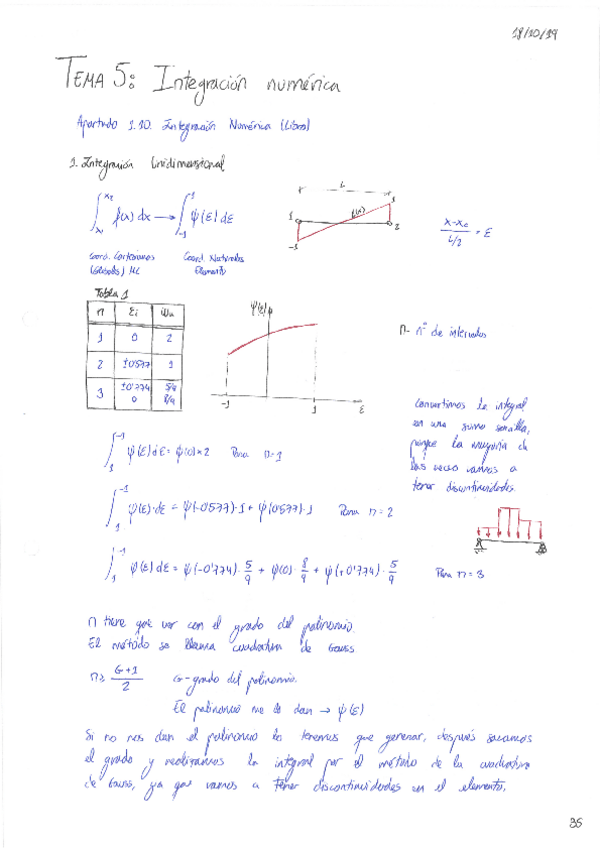 18/10/19
TEMA 5: Integración numérica
Apartado 1.10. Integración Numérica (Libro)
1. Integración Unidimensional
∫ x₁ x₂ f(x) dx → ∫ -1 -1 ψ(ε) dε
L
1 f(x) 1 2
-1
x-xc / L/2 = ε
Coord. Cartesianas Coord. Naturales
(Globales) Elemento
Tabla 1
n εi Wi
1 0 2
2 ±0'577 1
3 ±0'774 5/9
0 8/9
ψ(ε)
-1 1 ε
n- nº de intervalos
Convertimos la integral
en una suma sencilla,
porque la mayoría de
las veces vamos a
tener discontinuidades.
∫ 1 -1 ψ(ε) dε = ψ(0) × 2 Para n=1
∫ 1 -1 ψ(ε)·dε = ψ(-0'577)·1 + ψ(0'577)·1 Para n=2
∫ 1 -1 ψ(ε) dε = ψ(-0'774)·5/9 + ψ(0)·8/9 + ψ(+0'774)·5/9 Para n=3
n tiene que ver con el grado del polinomio.
El método se llama cuadratura de Gauss
n≥ G+1 / 2 G-grado del polinomio.
El polinomio me lo dan → ψ(ε)
Si no nos dan el polinomio lo tenemos que generar, después sacamos
el grado y realizamos la integral por el método de la cuadratura
de Gauss, ya que vamos a tener discontinuidades en el elemento.
35